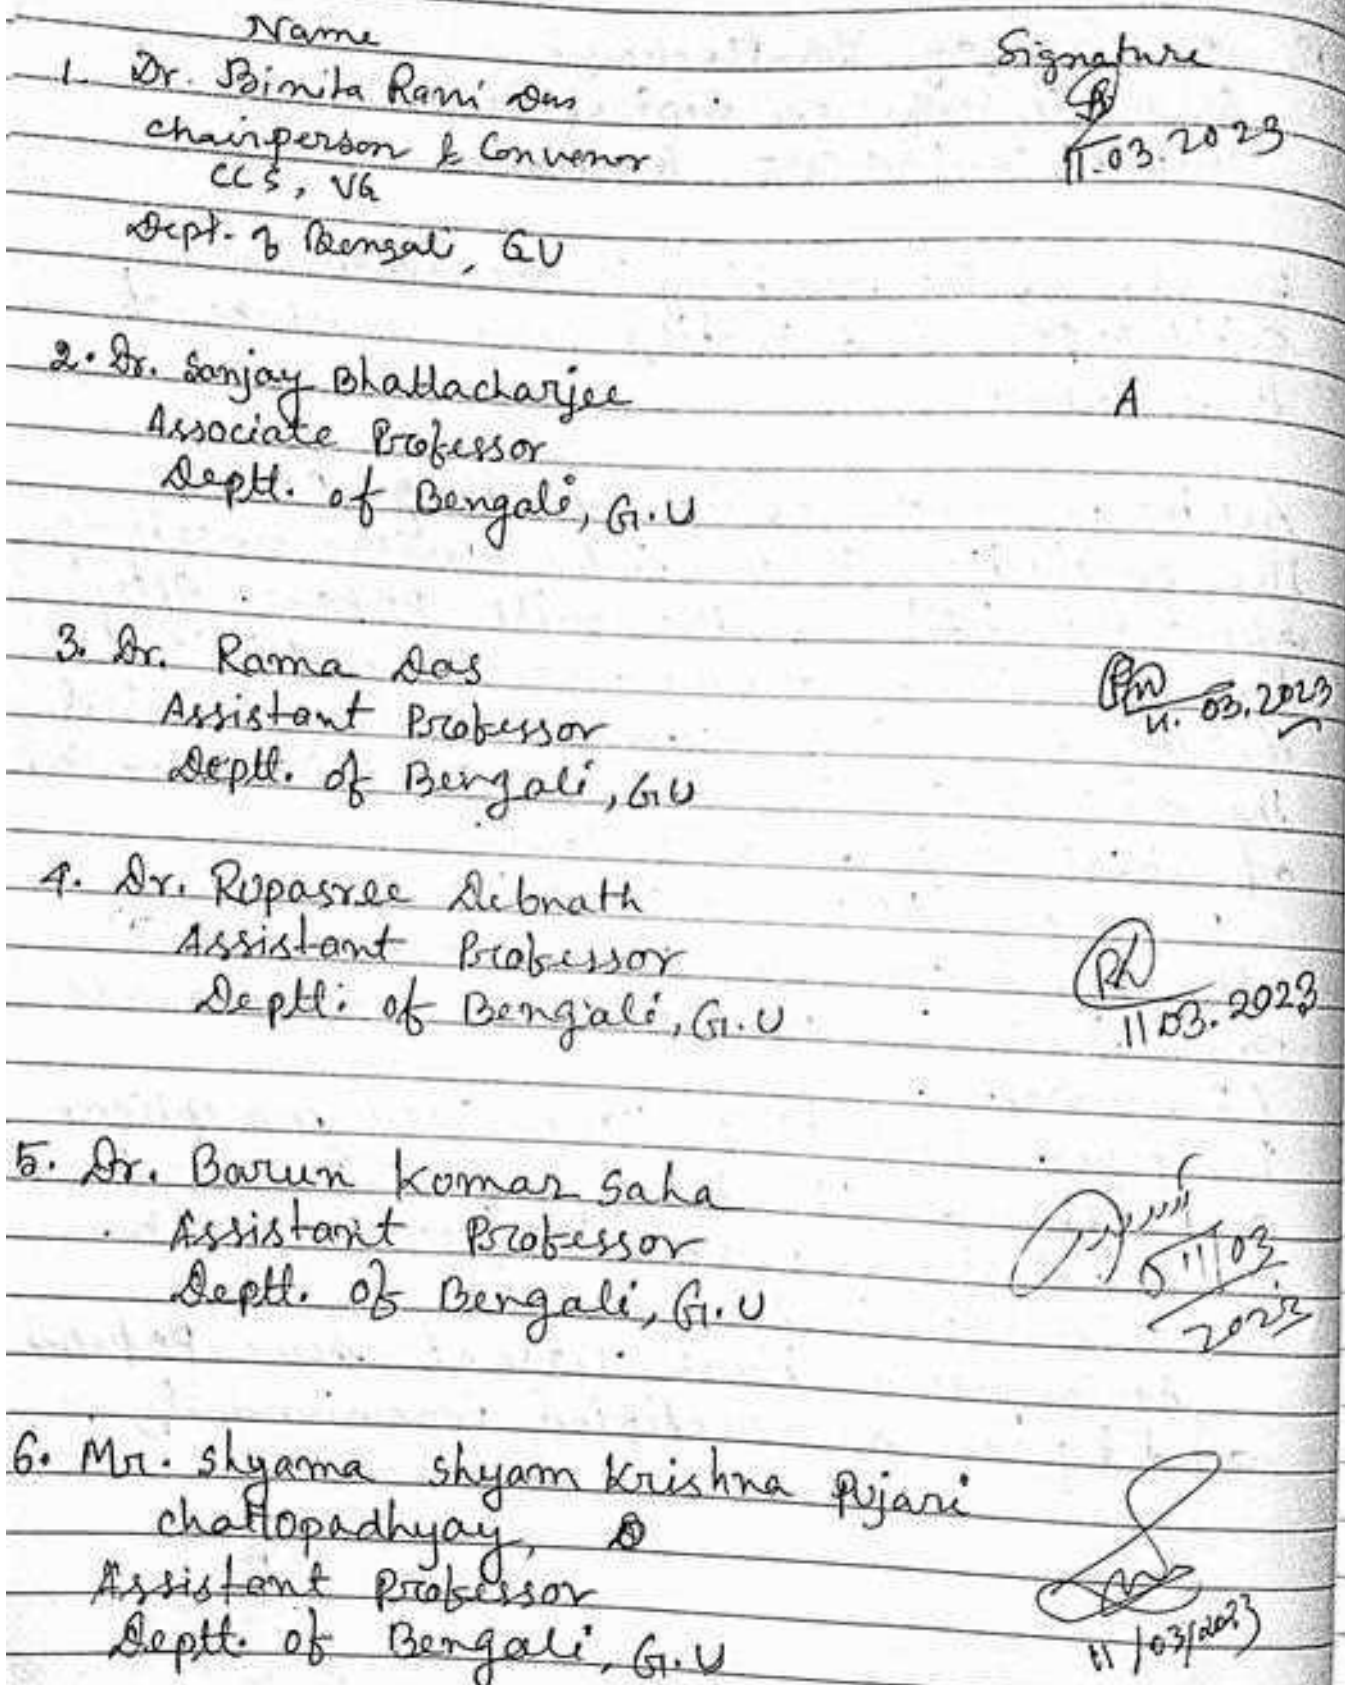 Name Signature
1. Dr. Binita Rani Das
11.03.2023
Chairperson & Convenor
CCS, VG
Dept. of Bengali, GU
2. Dr. Sanjay Bhattacharjee A
Associate Professor
Deptt. of Bengali, G.U
3. Dr. Rama Das
11.03.2023
Assistant Professor
Deptt. of Bengali, GU
4. Dr. Rupasree Debnath
Assistant Professor
Deptt. of Bengali, G.U
11.03.2023
5. Dr. Barun Kumar Saha
Assistant Professor
11/03
Deptt. of Bengali, G.U
2023
6. Mr. Shyama Shyam Krishna Pujari
Chattopadhyay,
Assistant Professor
Deptt. of Bengali, G.U
11/03/2023